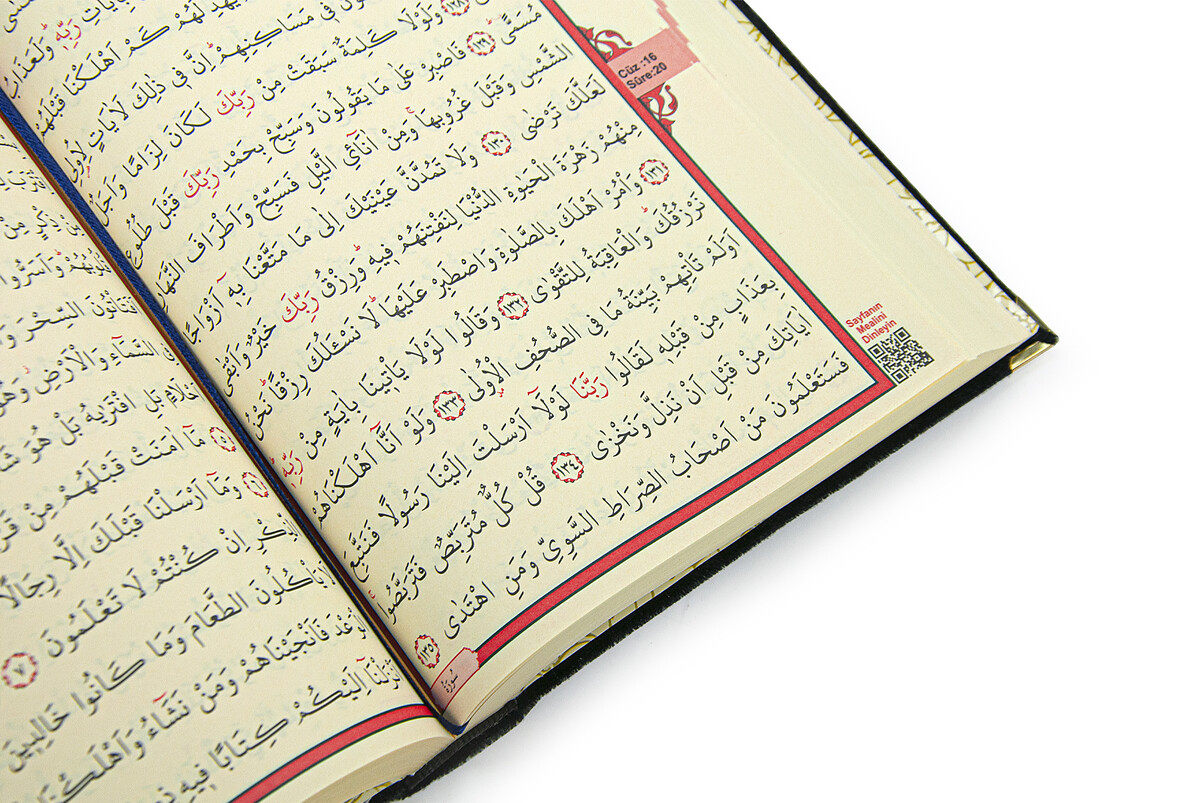 بِاٰيَاتِ رَبِّهٖ وَلَعَذَابُ
يَهْدِ لَهُمْ كَمْ اَهْلَكْنَا قَبْلَهُمْ
فٖى مَسَاكِنِهِمْ اِنَّ فٖى ذٰلِكَ لَاٰيَاتٍ لِاُولِى
١٢٨ وَلَوْلَا كَلِمَةٌ سَبَقَتْ مِنْ رَبِّكَ لَكَانَ لِزَامًا وَاَجَلٌ
مُسَمًّى ١٢٩ فَاصْبِرْ عَلٰى مَا يَقُولُونَ وَسَبِّحْ بِحَمْدِ رَبِّكَ قَبْلَ طُلُوعِ
الشَّمْسِ وَقَبْلَ غُرُوبِهَا وَمِنْ اٰنَآئِ الَّيْلِ فَسَبِّحْ وَاَطْرَافَ النَّهَارِ
لَعَلَّكَ تَرْضٰى ١٣٠ وَلَا تَمُدَّنَّ عَيْنَيْكَ اِلٰى مَا مَتَّعْنَا بِهٖٓ اَزْوَاجًا
مِنْهُمْ زَهْرَةَ الْحَيٰوةِ الدُّنْيَا لِنَفْتِنَهُمْ فٖيهِ وَرِزْقُ رَبِّكَ خَيْرٌ وَاَبْقٰى
١٣١ وَأْمُرْ اَهْلَكَ بِالصَّلٰوةِ وَاصْطَبِرْ عَلَيْهَا لَا نَسْـَٔلُكَ رِزْقًا نَحْنُ
نَرْزُقُكَ وَالْعَاقِبَةُ لِلتَّقْوٰى ١٣٢ وَقَالُوا لَوْلَا يَأْتٖينَا بِاٰيَةٍ مِنْ رَبِّهٖ
اَوَلَمْ تَأْتِهِمْ بَيِّنَةُ مَا فِى الصُّحُفِ الْاُولٰى ١٣٣ وَلَوْ اَنَّٓا اَهْلَكْنَاهُمْ
بِعَذَابٍ مِنْ قَبْلِهٖ لَقَالُوا رَبَّنَا لَوْلَٓا اَرْسَلْتَ اِلَيْنَا رَسُولًا فَنَتَّبِعَ
اٰيَاتِكَ مِنْ قَبْلِ اَنْ نَذِلَّ وَنَخْزٰى ١٣٤ قُلْ كُلٌّ مُتَرَبِّصٌ فَتَرَبَّصُوا
فَسَتَعْلَمُونَ مَنْ اَصْحَابُ الصِّرَاطِ السَّوِىِّ وَمَنِ اهْتَدٰى ١٣٥
Cüz :16
Sûre:20
Sayfanın
Mealini
Dinleyin
سُورَةُ
مِنْ ذِكْرٍ مِنْ
قُلُوبُهُمْ وَاَسَرُّوا
اَفَتَأْتُونَ السِّحْرَ
السَّمَٓاءِ وَالْاَرْضِ وَهُوَ
اَحْلَامٍ بَلِ افْتَرٰيهُ بَلْ هُوَ
٥ مَٓا اٰمَنَتْ قَبْلَهُمْ مِنْ
٦ وَمَٓا اَرْسَلْنَا قَبْلَكَ اِلَّا رِجَالًا
الذِّكْرِ اِنْ كُنْتُمْ لَا تَعْلَمُونَ ٧
لَا يَأْكُلُونَ الطَّعَامَ وَمَا كَانُوا خَالِدٖينَ
الْوَعْدَ فَاَنْجَيْنَاهُمْ وَمَنْ نَشَٓاءُ وَاَهْلَكْنَا
اَنْزَلْنَٓا اِلَيْكُمْ كِتَابًا فٖيهِ